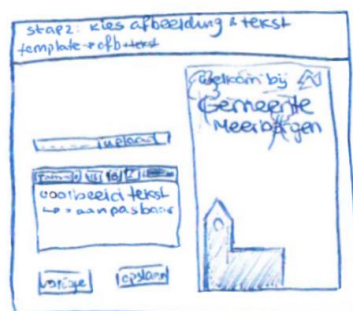 stap 2: kies afbeelding & tekst
template → afb+tekst
upload
voorbeeld tekst
↳ = aanpasbaar
vorige
opslaan
Welkom bij
Gemeente
Meerbergen